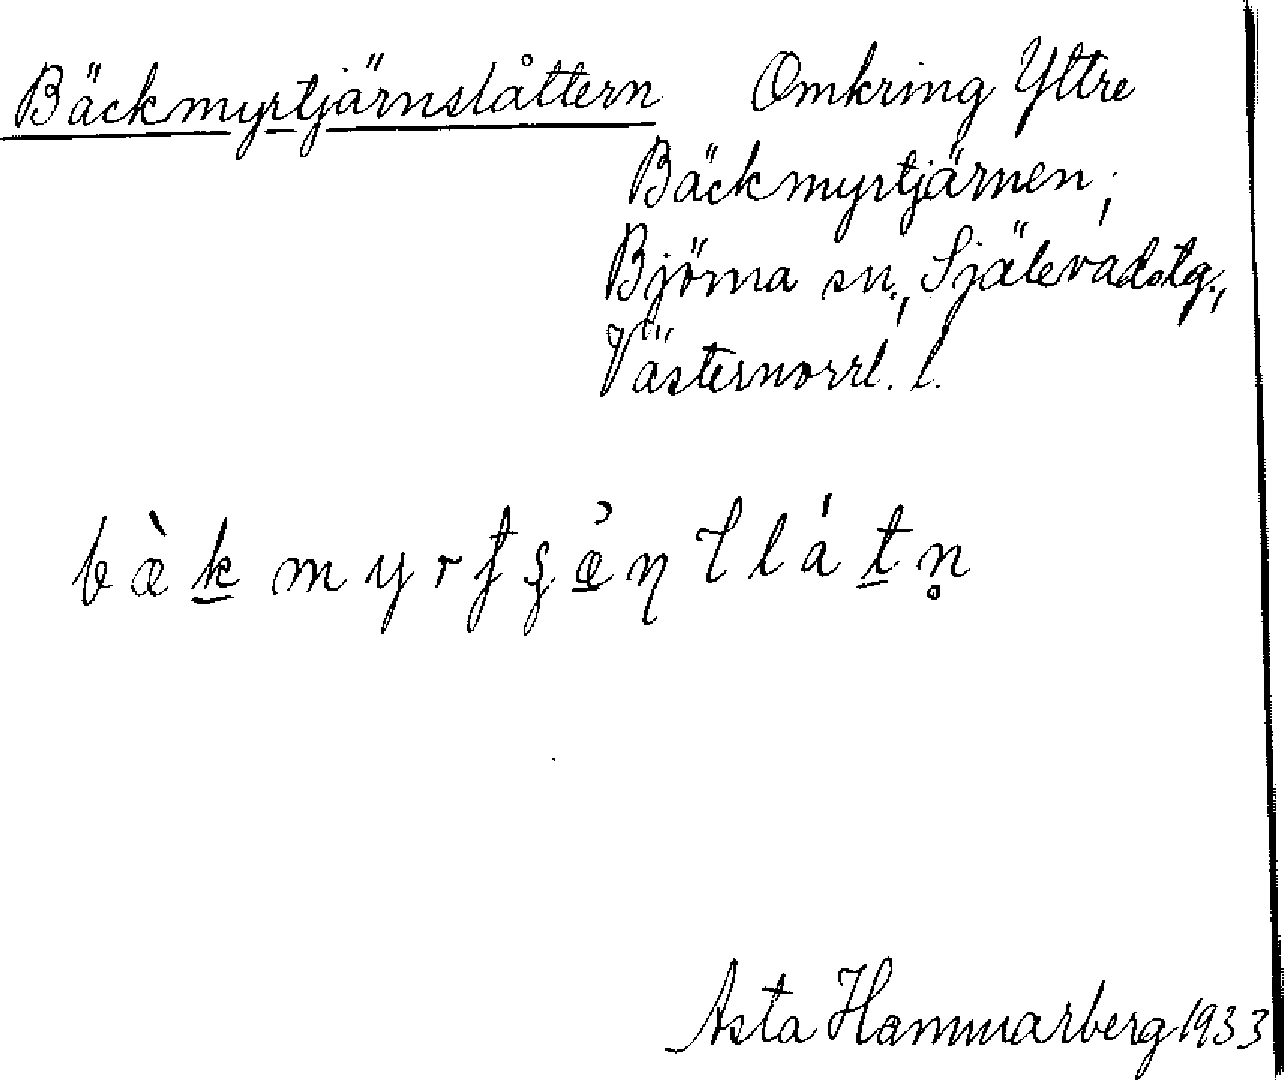 Bäckmyrtjärnslåttern Omkring Yttre
Bäckmyrtjärnen,
Björna sn., Själevadstg.,
Västernorrl. l.
Asta Hammarberg 1933